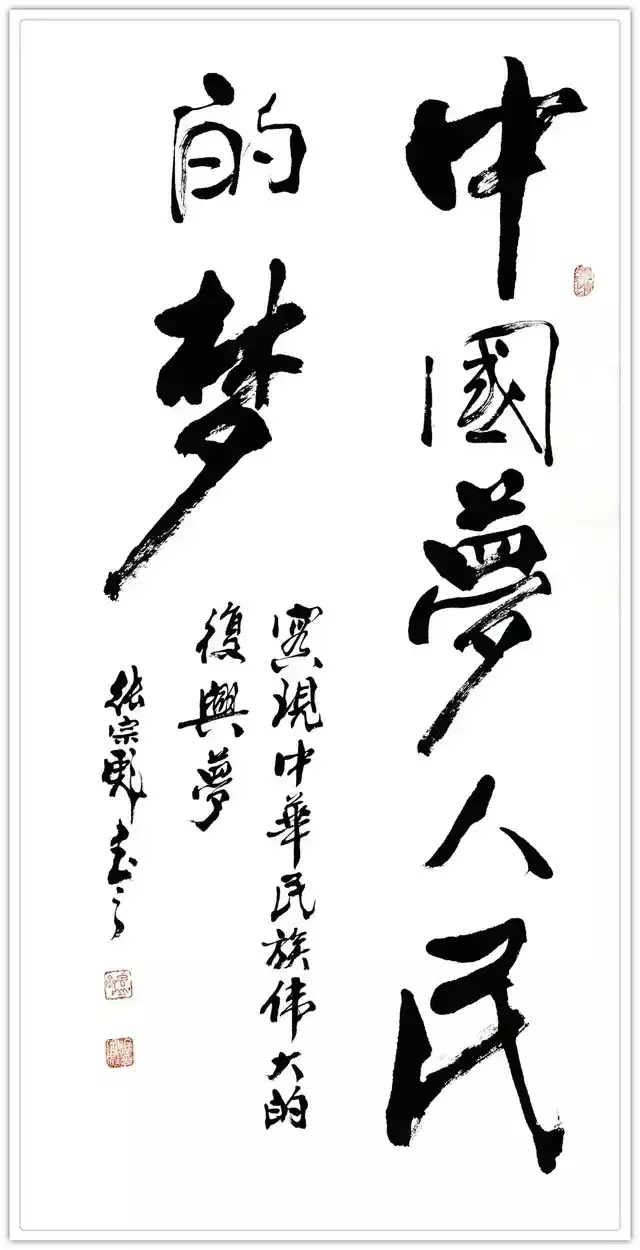 中國夢人民
的梦
實現中華民族伟大的
復興夢
张宗彪书之